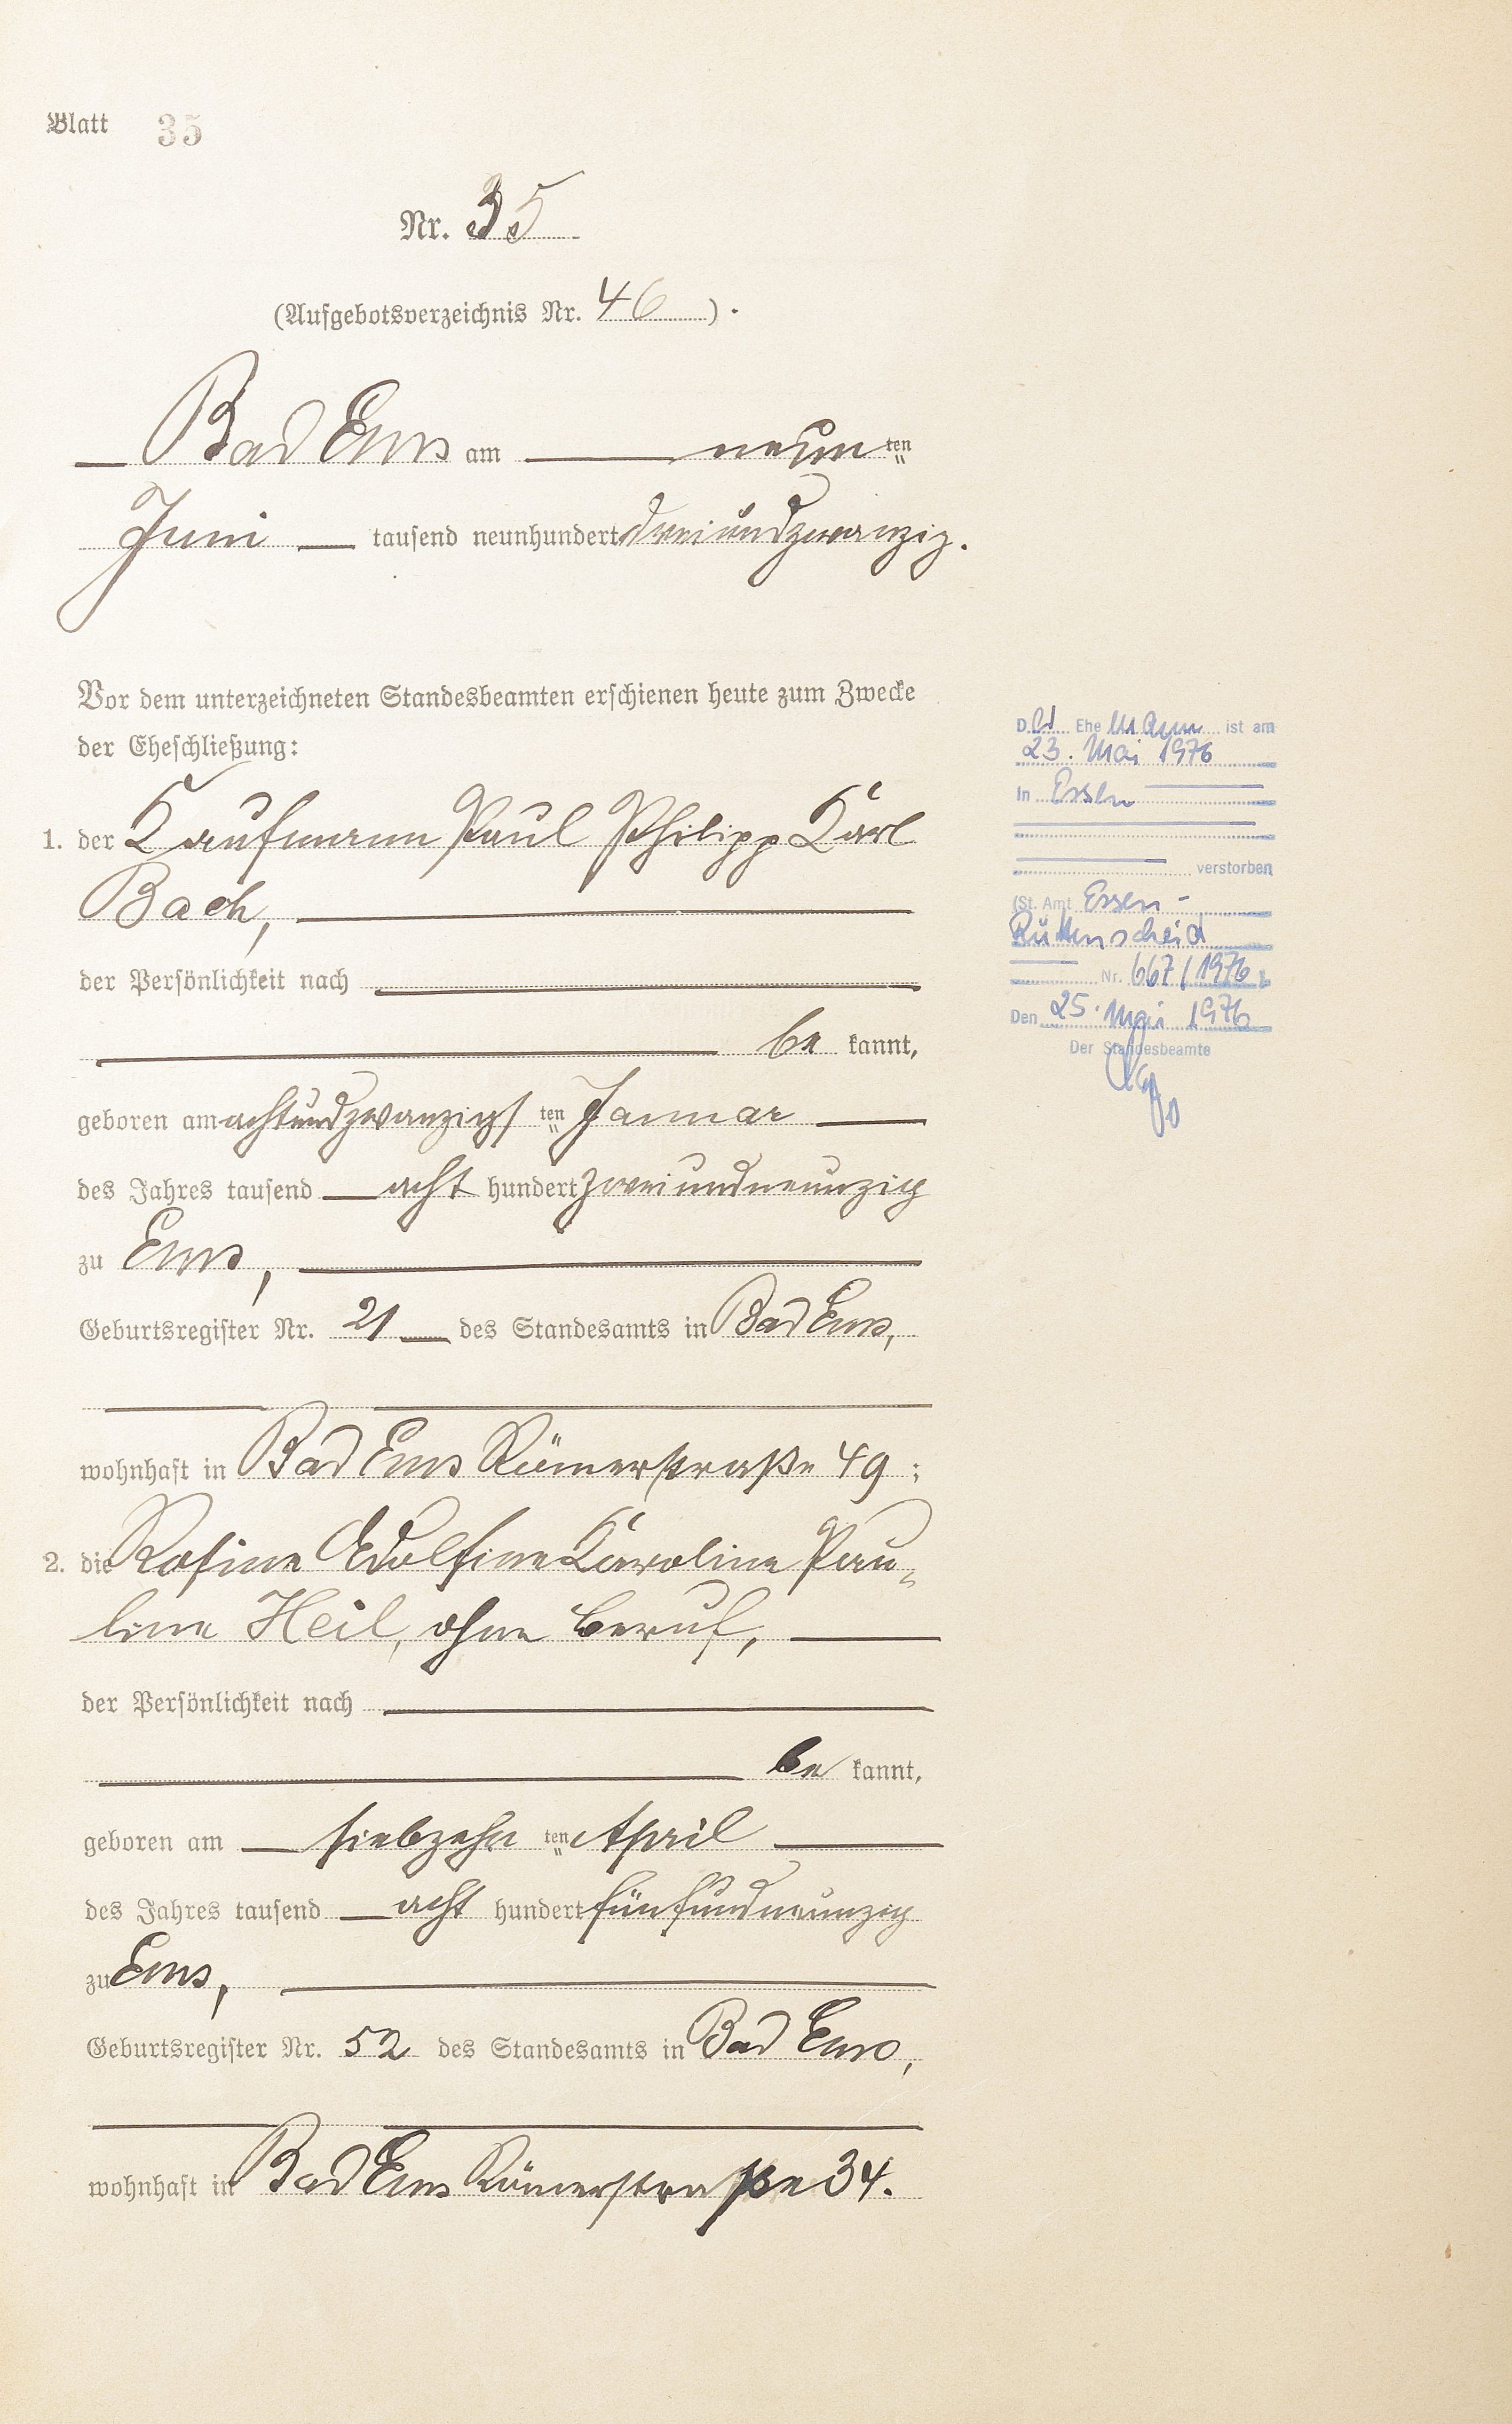 Blatt 35
Nr. 35
(Aufgebotsverzeichnis Nr. 46).
Bad Ems am neunten
Juni tausend neunhundert dreiundzwanzig.
Vor dem unterzeichneten Standesbeamten erschienen heute zum Zwecke
der Eheschließung:
1. der Kaufmann Paul Philipp Karl
Bach,
der Persönlichkeit nach
be kannt,
geboren am achtundzwanzigsten Januar
des Jahres tausend acht hundert zweiundneunzig
zu Ems,
Geburtsregister Nr. 21 des Standesamts in Bad Ems,
wohnhaft in Bad Ems Römerstraße 49;
2. die Rosine Adolfine Karoline Pau-
line Heil, ohne Beruf,
der Persönlichkeit nach
be kannt,
geboren am siebzehnten April
des Jahres tausend acht hundert fünfundneunzig
zu Ems,
Geburtsregister Nr. 52 des Standesamts in Bad Ems,
wohnhaft in Bad Ems Römerstraße 34.
Der Ehemann ist am
23. Mai 1976
in Essen
verstorben
(St. Amt Essen-
Rüttenscheid
Nr. 667/1976).
Den 25. Mai 1976
Der Standesbeamte